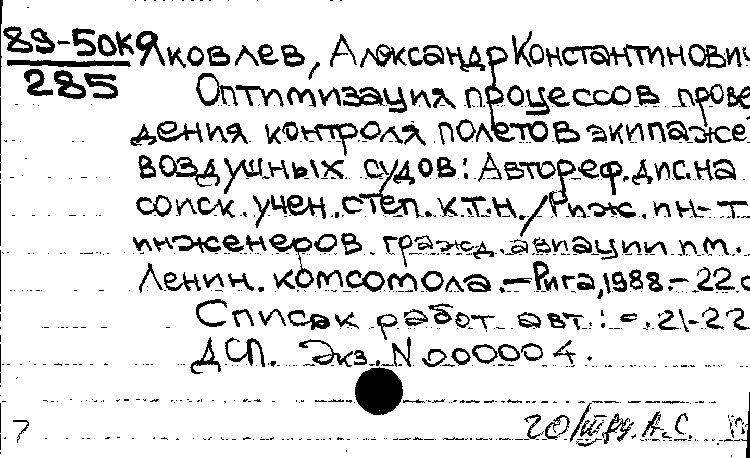 89-50К Яковлев, Александр Константинович
285
Оптимизация процессов прове
дения контроля полетов экипаже
воздушных судов: Автореф. дис. на
соиск. учен. степ. к.т.н. / Риж. ин-т
инженеров гражд. авиации им.
Ленин. комсомола. – Рига, 1988. – 22 с
Список работ авт.: с. 21-22
ДСП. Экз. N 000004.
7 20/III